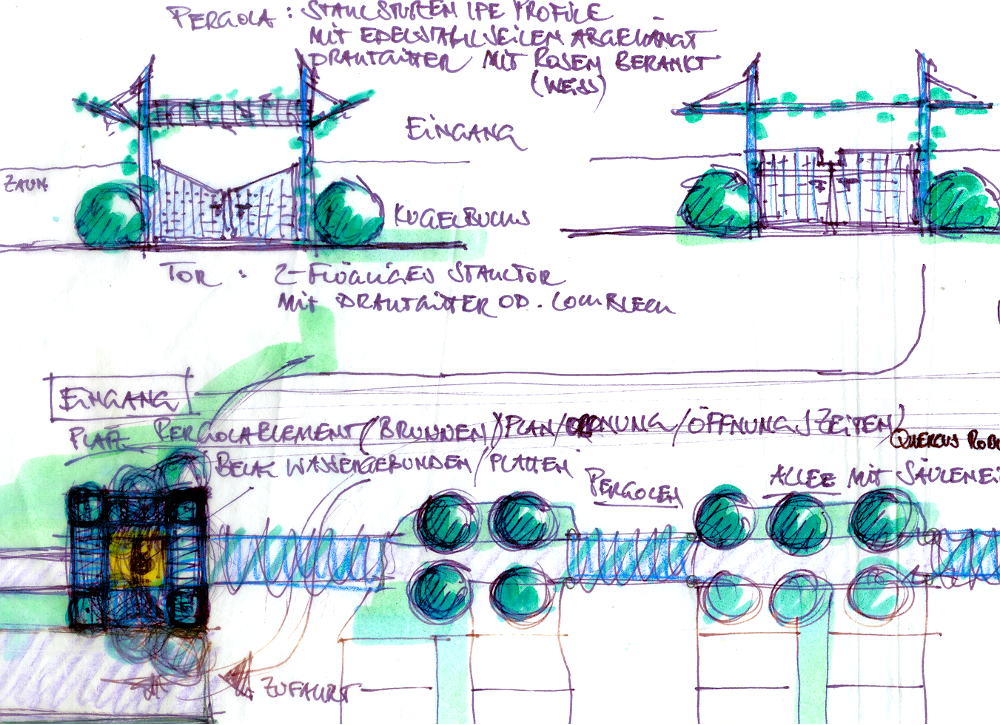 PERGOLA : STAHLSTÜTZEN IPE PROFILE
MIT EDELSTAHLSEILEN ABGEHÄNGT
DRAHTGITTER MIT ROSEN BERANKT
(WEISS)
EINGANG
ZAUN
KUGELBUCHS
TOR : 2-FLÜGLIGES STAHLTOR
MIT DRAHTGITTER OD. LOCHBLECH
EINGANG
PLATZ PERGOLAELEMENT (BRUNNEN) PLAN/ORDNUNG/ÖFFNUNGSZEITEN)
QUERCUS ROBU
BELAG WASSERGEBUNDEN/PLATTEN
PERGOLEN
ALLEE MIT SÄULENEI
ZUFAHRT